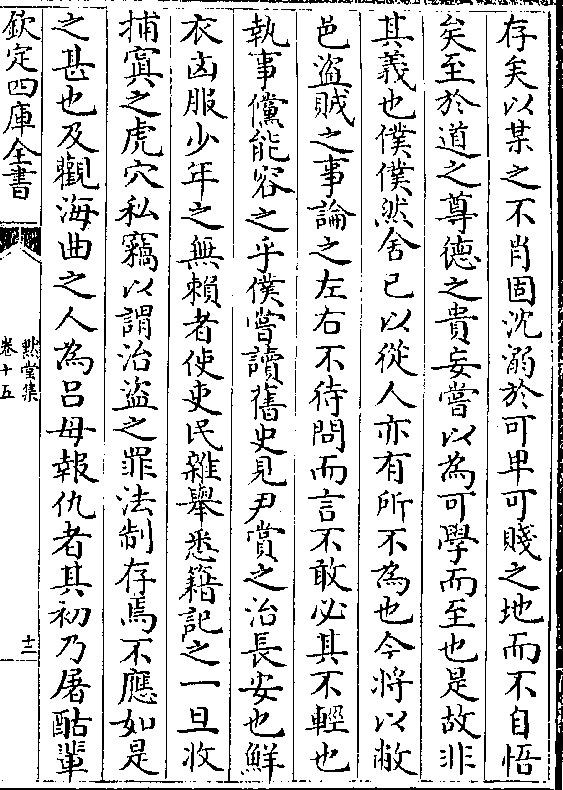 存矣以某之不肖固沈溺於可卑可賤之地而不自悟
矣至於道之尊德之貴妄嘗以為可學而至也是故非
其義也僕僕然舍已以從人亦有所不為也今將以敝
邑盜賊之事論之左右不待問而言不敢必其不輕也
執事儻能容之乎僕嘗讀舊史見尹賞之治長安也鮮
衣凶服少年之無賴者使吏民雜舉悉籍記之一旦收
捕寘之虎穴私竊以謂治盜之罪法制存焉不應如是
之甚也及觀海曲之人為呂母報仇者其初乃屠酤輩
欽定四庫全書
默堂集
卷十五
十二